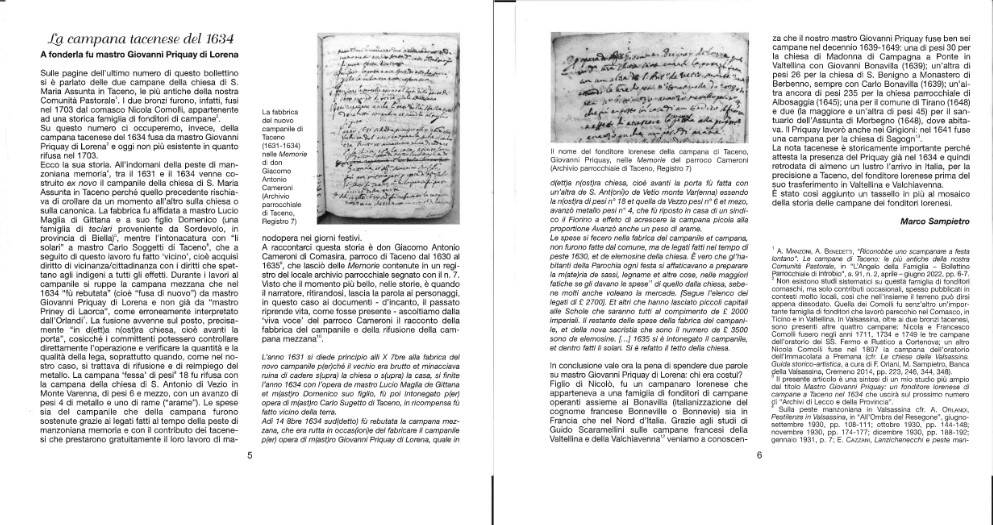 La campana tacenese del 1634
A fonderla fu mastro Giovanni Priquay di Lorena
Sulle pagine dell'ultimo numero di questo bollettino
si è parlato delle due campane della chiesa di S.
Maria Assunta in Taceno, le più antiche della nostra
Comunità Pastorale¹. I due bronzi furono, infatti, fusi
nel 1703 dal comasco Nicola Comolli, appartenente
ad una storica famiglia di fonditori di campane².
Su questo numero ci occuperemo, invece, della
campana tacenese del 1634 fusa da mastro Giovanni
Priquay di Lorena³ e oggi non più esistente in quanto
rifusa nel 1703.
Ecco la sua storia. All'indomani della peste di man-
zoniana memoria⁴, tra il 1631 e il 1634 venne co-
struito ex novo il campanile della chiesa di S. Maria
Assunta in Taceno perché quello precedente rischia-
va di crollare da un momento all'altro sulla chiesa o
sulla canonica. La fabbrica fu affidata a mastro Lucio
Maglia di Gittana e a suo figlio Domenico (una
famiglia di teciari proveniente da Sordevolo, in
provincia di Biella)⁵, mentre l'intonacatura con "li
solari" a mastro Carlo Soggetti di Taceno⁶, che a
seguito di questo lavoro fu fatto 'vicino', cioè acquisì
diritto di vicinanza/cittadinanza con i diritti che spet-
tano agli indigeni a tutti gli effetti. Durante i lavori al
campanile si ruppe la campana mezzana che nel
1634 "fù rebutata" (cioè "fusa di nuovo") da mastro
Giovanni Priquay di Lorena e non già da "mastro
Priney di Laorca", come erroneamente interpretato
dall'Orlandi⁷. La fusione avvenne sul posto, precisa-
mente "in d(ett)a n(ost)ra chiesa, cioè avanti la
porta", cosicché i committenti potessero controllare
direttamente l'operazione e verificare la quantità e la
qualità della lega, soprattutto quando, come nel no-
stro caso, si trattava di rifusione e di reimpiego del
metallo. La campana "fessa' di pesi⁸ 18 fu rifusa con
la campana della chiesa di S. Antonio di Vezio in
Monte Varenna, di pesi 6 e mezzo, con un avanzo di
pesi 4 di metallo e uno di rame ("arame"). Le spese
sia del campanile che della campana furono
sostenute grazie ai legati fatti al tempo della peste di
manzoniana memoria e con il contributo dei tacene-
si che prestarono gratuitamente il loro lavoro di ma-
La fabbrica
del nuovo
campanile di
Taceno
(1631-1634)
nelle Memorie
di don
Giacomo
Antonio
Cameroni
(Archivio
parrocchiale
di Taceno,
Registro 7)
nodopera nei giorni festivi.
A raccontarci questa storia è don Giacomo Antonio
Cameroni di Comasira, parroco di Taceno dal 1630 al
1635⁹, che lasciò delle Memorie contenute in un regi-
stro del locale archivio parrocchiale segnato con il n. 7.
Visto che il momento più bello, nelle storie, è quando
il narratore, ritirandosi, lascia la parola ai personaggi,
in questo caso ai documenti - d'incanto, il passato
riprende vita, come fosse presente - ascoltiamo dalla
'viva voce' del parroco Cameroni il racconto della
fabbrica del campanile e della rifusione della cam-
pana mezzana¹⁰.
L'anno 1631 si diede principio alli X 7bre alla fabrica del
novo campanile p(er)ché il vechio era brutto et minacciava
ruina di cadere s(upra) la chiesa o s(upra) la casa, si finite
l'anno 1634 con l'opera de mastro Lucio Maglia de Gittana
et m(ast)ro Domenico suo figlio, fù poi intonegato p(er)
opera di m(ast)ro Carlo Sugetto di Taceno, in ricompensa fù
fatto vicino della terra.
Adì 14 8bre 1634 sud(detto) fù rebutata la campana mez-
zana, che era rutta in occas(ion)e del fabricare il campanile
p(er) opera di m(ast)ro Giovanni Priquay di Lorena, quale in
5
Il nome del fonditore lorenese della campana di Taceno,
Giovanni Priquay, nelle Memorie del parroco Cameroni
(Archivio parrocchiale di Taceno, Registro 7)
d(ett)a n(ost)ra chiesa, cioé avanti la porta fù fatta con
un'altra de S. Ant(oni)o de Vetio monte Var(enna) essendo
la n(ost)ra di pesi n° 18 et quella da Vezzo pesi n° 6 et mezo,
avanzò metallo pesi n° 4, che fù riposto in casa di un sindi-
co il Fiorino a effeto di acrescere la campana picola alla
proportione Avanzò anche un peso di arame.
Le spese si fecero nella fabrica del campanile et campana,
non furono fatte dal comune, ma de legati fatti nel tempo di
peste 1630, et de elemosine della chiesa. È vero che gl'ha-
bitanti della Parochia ogni festa si affaticavano a preparare
la m(ate)ria de sassi, legname et altre cose, nelle maggiori
fatiche se gli davano le spese¹¹ di quello dalla chiesa, sebe-
ne molti anche volsero la mercede. [Segue l'elenco dei
legati di £ 2700]. Et altri hanno lasciato piccoli capitali
alle Schole che saranno tutti al compimento de £ 2000
imperiali. Il restante delle spese della fabrica del campani-
le, et della nova sacristia che sono il numero de £ 3500
sono de elemosine. [...] 1635 si è intonegato il campanile,
et dentro fatti li solari. Si è refato il tetto della chiesa.
In conclusione vale ora la pena di spendere due parole
su mastro Giovanni Priquay di Lorena: chi era costui?
Figlio di Nicolò, fu un campanaro lorenese che
apparteneva a una famiglia di fonditori di campane
operanti assieme ai Bonavilla (italianizzazione del
cognome francese Bonneville o Bonnevie) sia in
Francia che nel Nord d'Italia. Grazie agli studi di
Guido Scaramellini sulle campane francesi della
Valtellina e della Valchiavenna¹² veniamo a conoscen-
za che il nostro mastro Giovanni Priquay fuse ben sei
campane nel decennio 1639-1649: una di pesi 30 per
la chiesa di Madonna di Campagna a Ponte in
Valtellina con Giovanni Bonavilla (1639); un'altra di
pesi 26 per la chiesa di S. Benigno a Monastero di
Berbenno, sempre con Carlo Bonavilla (1639); un'al-
tra ancora di pesi 235 per la chiesa parrocchiale di
Albosaggia (1645); una per il comune di Tirano (1648)
e due (la maggiore e un'altra di pesi 45) per il san-
tuario dell'Assunta di Morbegno (1648), dove abita-
va. Il Priquay lavorò anche nei Grigioni: nel 1641 fuse
una campana per la chiesa di Sagogn¹³.
La nota tacenese è storicamente importante perché
attesta la presenza del Priquay già nel 1634 e quindi
retrodata di almeno un lustro l'arrivo in Italia, per la
precisione a Taceno, del fonditore lorenese prima del
suo trasferimento in Valtellina e Valchiavenna.
È stato così aggiunto un tassello in più al mosaico
della storia delle campane dei fonditori lorenesi.
Marco Sampietro
¹ A. MANZONI, A. BENEDETTI, "Riconobbe uno scampanare a festa
lontano". Le campane di Taceno: le più antiche della nostra
Comunità Pastorale, in "L'Angelo della Famiglia – Bollettino
Parrocchiale di Introbio", a. 91, n. 2, aprile – giugno 2022, pp. 6-7.
² Non esistono studi sistematici su questa famiglia di fonditori
comaschi, ma solo contributi occasionali, spesso pubblicati in
contesti molto locali, così che nell'insieme il terreno può dirsi
appena dissodato. Quella dei Comolli fu senz'altro un'impor-
tante famiglia di fonditori che lavorò parecchio nel Comasco, in
Ticino e in Valtellina. In Valsassina, oltre ai due bronzi tacenesi,
sono presenti altre quattro campane: Nicola e Francesco
Comolli fusero negli anni 1711, 1734 e 1749 le tre campane
dell'oratorio dei SS. Fermo e Rustico a Cortenova; un altro
Nicola Comolli fuse nel 1807 la campana dell'oratorio
dell'Immacolata a Premana (cfr. Le chiese della Valsassina.
Guida storico-artistica, a cura di F. Oriani, M. Sampietro, Banca
della Valsassina, Cremeno 2014, pp. 223, 246, 344, 348).
³ Il presente articolo è una sintesi di un mio studio più ampio
dal titolo Mastro Giovanni Priquay: un fonditore lorenese di
campane a Taceno nel 1634 che uscirà sul prossimo numero
di "Archivi di Lecco e della Provincia".
⁴ Sulla peste manzoniana in Valsassina cfr. A. ORLANDI,
Pestilenza in Valsassina, in "All'Ombra del Resegone", giugno-
settembre 1930, pp. 108-111; ottobre 1930, pp. 144-148;
novembre 1930, pp. 174-177; dicembre 1930, pp. 188-192;
gennaio 1931, p. 7; E. CAZZANI, Lanzichenecchi e peste man-
6